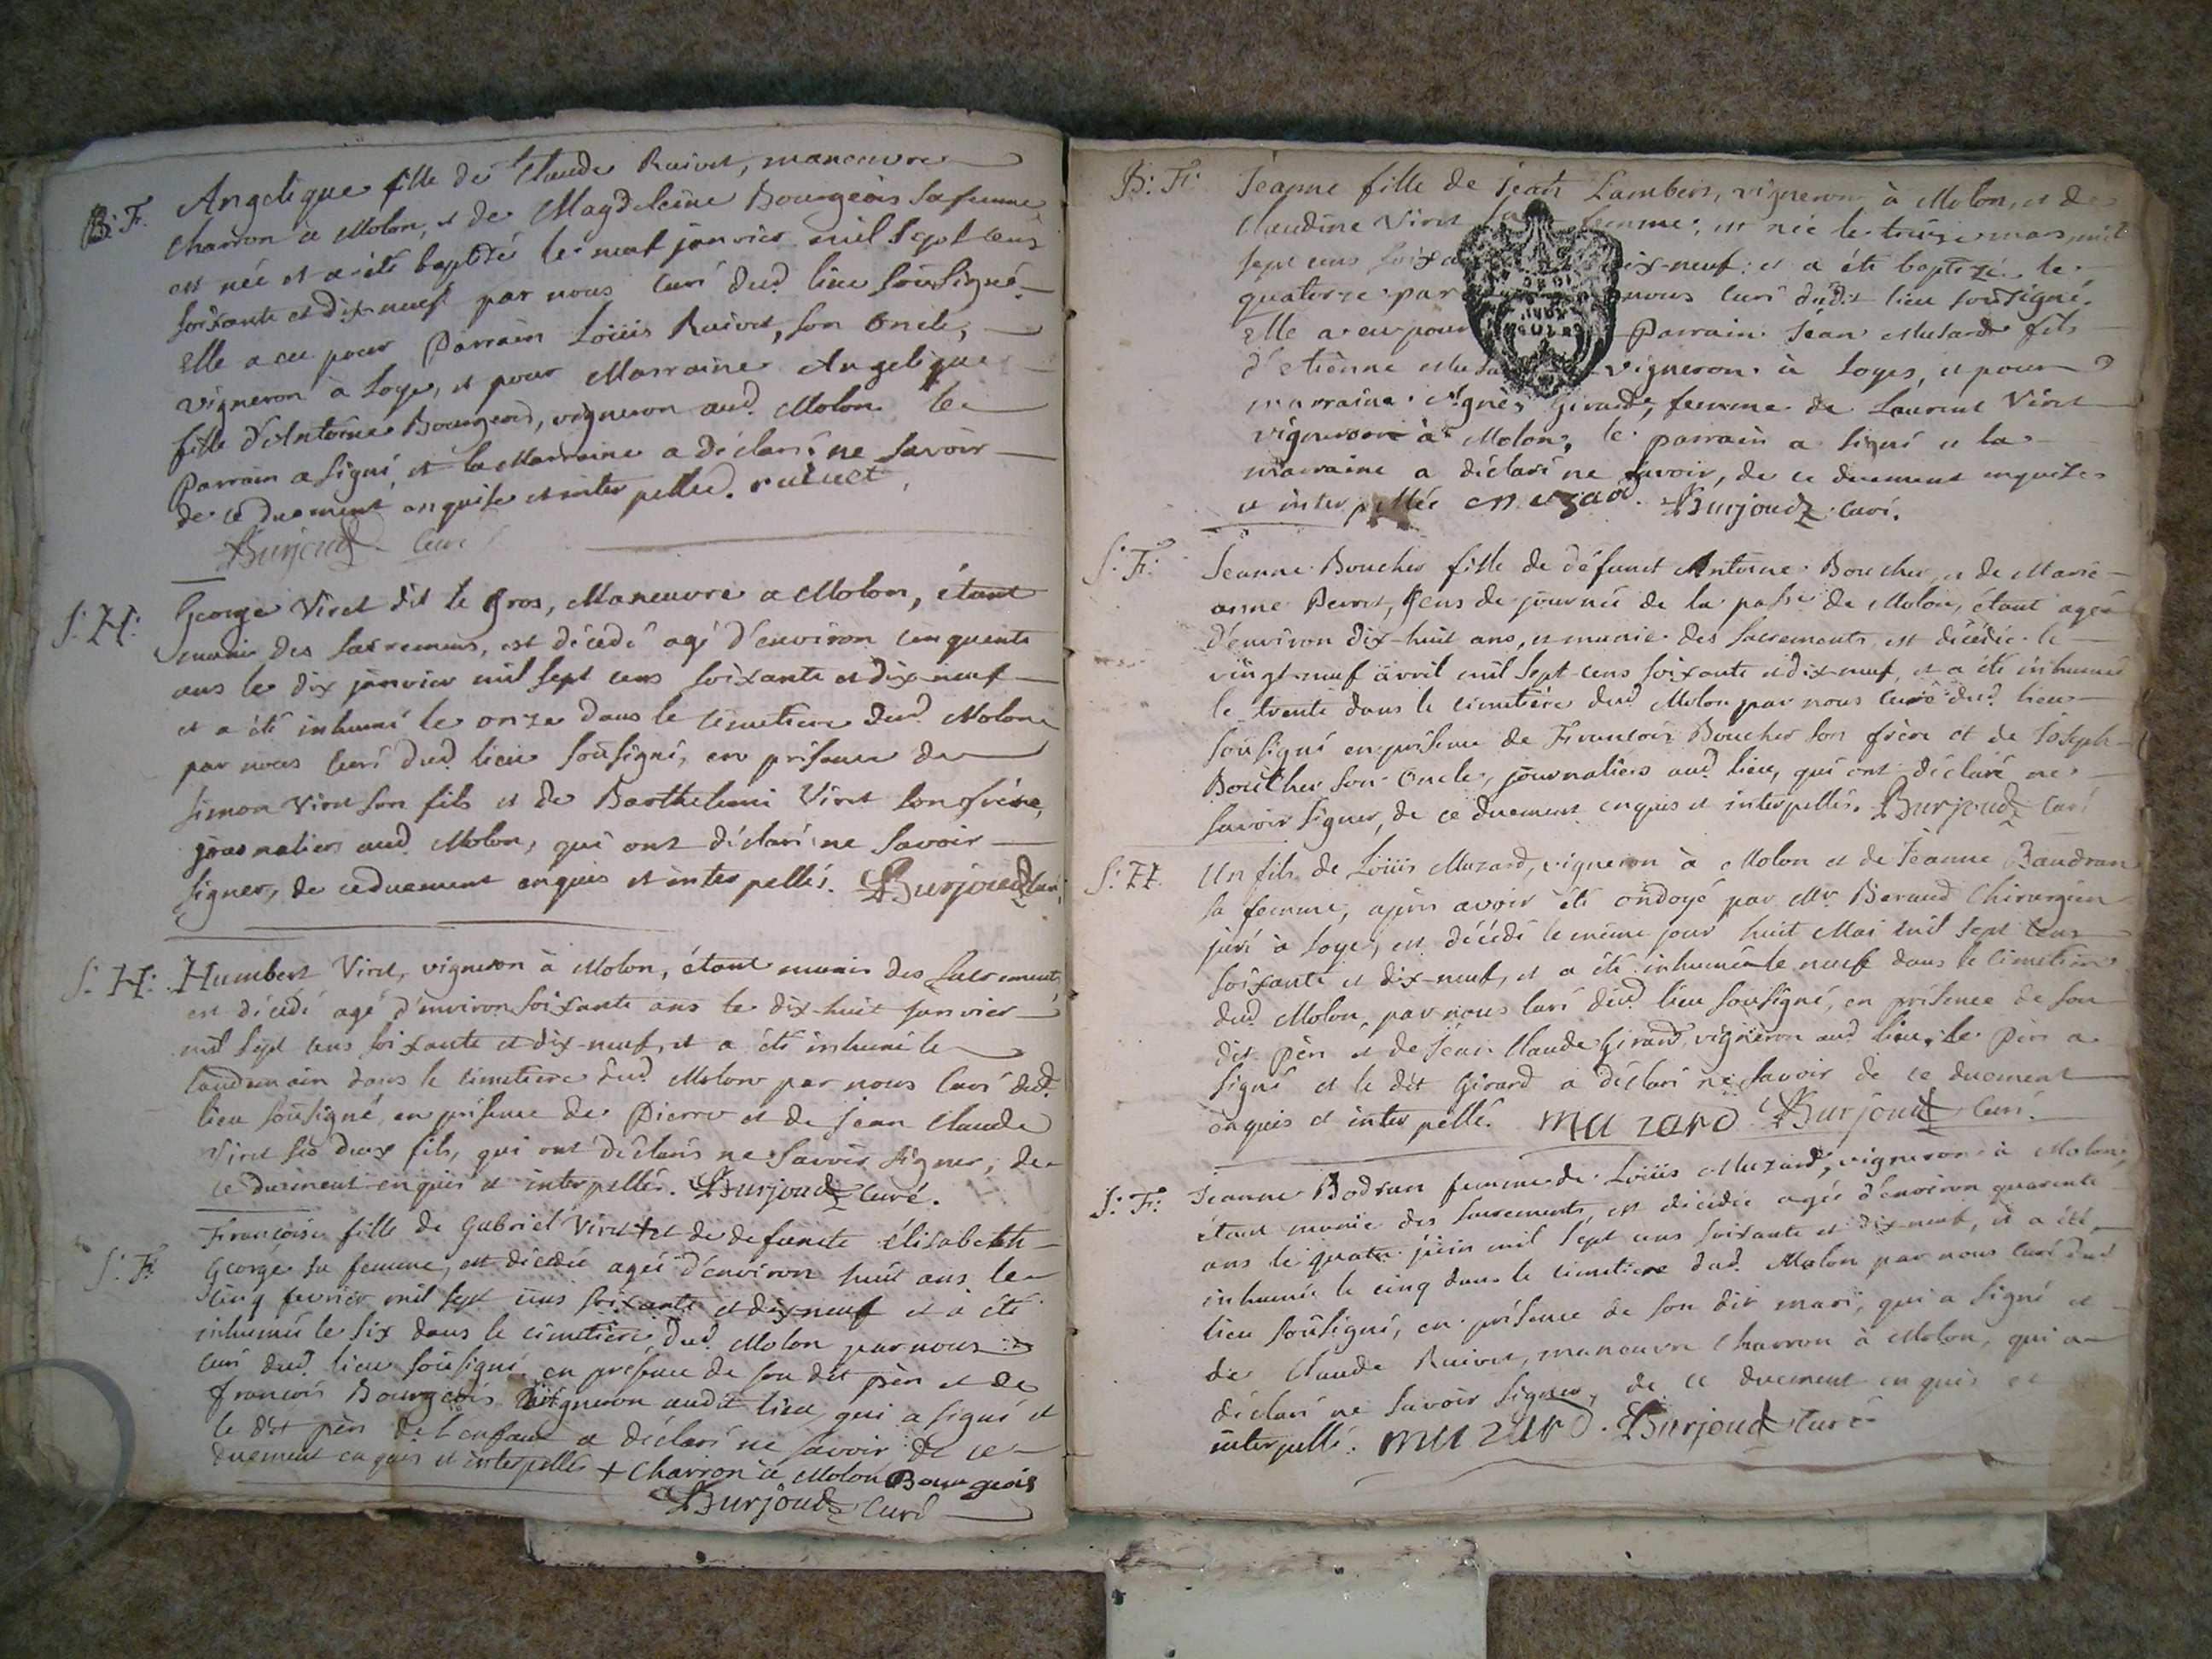 B: F. Angelique fille de Claude Ruivet, manoeuvre
charron à Molon, et de Magdeleine Bourgeois sa femme
est née et a été baptisée le neuf janvier mil sept cens
soixante et dix-neuf par nous curé dud. lieu soûsigné.
Elle a eu pour Parrain Loüis Ruivet, son oncle,
vigneron à Loye, et pour Marraine Angelique
fille d'Antoine Bourgeois, vigneron aud. Molon le
Parrain a signé, et la Marraine a déclaré ne savoir
de ce duement enquise et interpellée. ruivet
Burjoud curé
S: H: George Viret dit le gros, Maneuvre a Molon, étant
muni des sacremens, est décédé agé d'environ cinquante
ans le dix janvier mil sept cens soixante et dix-neuf
et a été inhumé le onze dans le cimetiere dud. Molon
par nous curé dud. lieu soûsigné, en présence de
simon Viret son fils et de Barthelemi Viret son frére,
journaliers aud. Molon, qui ont déclaré ne savoir
signer, de ce duement enquis et interpellés. Burjoud curé
S: H: Humbert Viret, vigneron à Molon, étant muni des sacrements,
est décédé agé d'environ soixante ans le dix-huit janvier
mil sept cens soixante et dix-neuf, et a été inhumé le
landemain dans le cimetiere dud. Molon par nous curé dud.
lieu soûsigné, en présence de Pierre et de jean Claude
Viret ses deux fils, qui ont déclarés ne savoir signer, de
ce duement enquis et interpellés. Burjoud curé.
S: F. Francoise fille de Gabriel Viret + et de defuncte élisabeth
George sa femme, est décédée agée d'environ huit ans le
cinq fevrier mil sept cens soixante et dix-neuf et a été
inhumée le six dans le cimetière dud. Molon par nous
curé dud. lieu soûsigné en présence de son dit père et de
francois Bourgeois vigneron audit lieu, qui a signé et
le dit père de l'enfant a déclaré ne savoir de ce
duement enquis et interpellés + charron à Molon Bourgeois
Burjoud curé
B: F: Jeanne fille de jean Lambert, vigneron à Molon, et de
Claudine Viret sa femme, est née le treize mars mil
sept cens dix-neuf: et a été baptizée le
quatorze par nous curé dudit lieu soûsigné.
Elle a eu pour Parrain Jéan Musard fils
d'etiènne vigneron à Loyes, et pour
marraine Agnès Girard, femme de Laurent Viret
vigneron à Molon, le parrain a signé et la
marraine a déclaré ne savoir, de ce duement enquise
et interpellée Burjoud curé.
S: F: Jeanne Boucher fille de défunct Antoine Boucher, et de Marie
anne Perret, gens de journée de la passe de Molon, étant agée
d'environ dix-huit ans, et munie des sacrements, est décédée le
vingt-neuf avril mil sept-cens soixante et dix-neuf, et a été inhumée
le trente dans le cimetière dud. Molon par nous curé dud. lieu
soûsigné en présence de Francois Boucher son frère et de Joseph
Boucher son oncle, journaliers aud. lieu, qui ont déclaré ne
savoir signer, de ce duement enquis et interpellés. Burjoud curé
S: H. Un fils de Loüis Muzard, vigneron à Molon et de Jeanne Baudran
sa femme, après avoir été ondoyé par Mr. Beraud Chirurgien
juré à Loye, est décédé le même jour huit Mai mil sept cens
soixante et dix-neuf, et a été inhumé le neuf dans le cimetiere
dud. Molon, par nous curé dud. lieu soûsigné, en présence de son
dit père et de Jéan Claude Girard, vigneron aud. lieu, le père a
signé et le dit Girard a déclaré ne savoir de ce duement
enquis et interpellé. muzard Burjoud curé.
S: F: Jeanne Bodran femme de Loüis Muzard, vigneron à Molon,
étant munie des sacrements, est décédée agée d'environ quarente
ans le quatre juin mil sept cens soixante et dix-neuf, et a été
inhumée le cinq dans le cimetiere dud. Molon par nous curé dud.
lieu soûsigné, en présence de son dit mari, qui a signé et
de Claude Ruivet, maneuvre Charron à Molon, qui a
déclaré ne savoir signer, de ce duement enquis et
interpellé. muzard. Burjoud curé